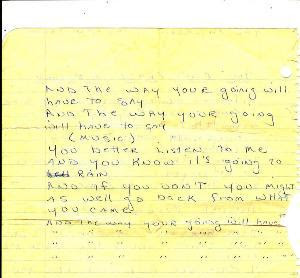 AND THE WAY YOUR GOING WILL
HAVE TO SAY
AND THE WAY YOUR GOING
WILL HAVE TO SAY
(MUSIC)
YOU BETTER LISTEN TO ME
AND YOU KNOW IT'S GOING TO
RAIN
AND IF YOU DON'T YOU MIGHT
AS WELL GO BACK FROM WHAT
YOU CAME
AND THE WAY YOUR GOING WILL HAVE
" " " " " "
" " " " " "